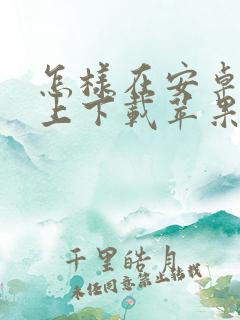 怎样在安卓
上下载苹果
千里皓月
未经同意禁止转载